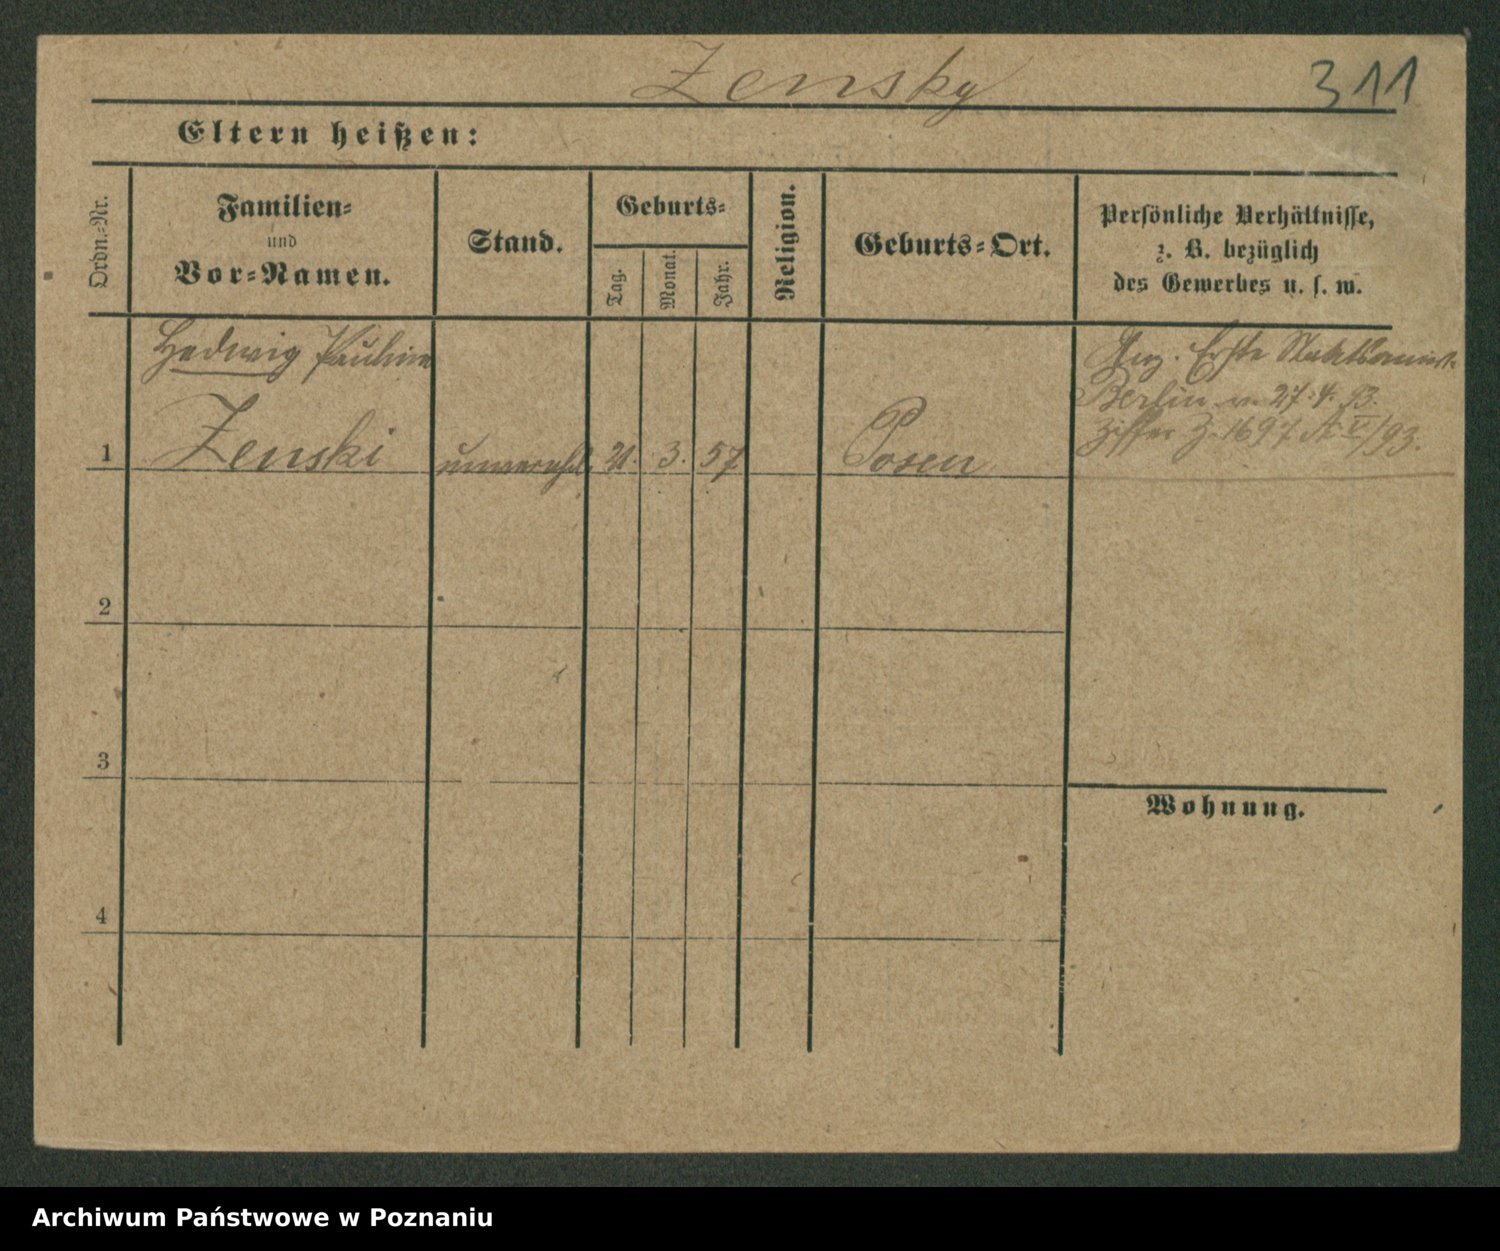 Zensky
311
Eltern heißen:
Ordn.-Nr.
Familien-
und
Vor-Namen.
Stand.
Geburts-
Tag.
Monat.
Jahr.
Religion.
Geburts-Ort.
Persönliche Verhältnisse,
z. B. bezüglich
des Gewerbes u. s. w.
Hedwig Pauline
1 Zenski unverehl. 21. 3. 57 Posen
Erste Staatsanw.
Berlin v. 27.4.93.
Ziffer Z. 1697. V/93.
2
3
Wohnung.
4
Archiwum Państwowe w Poznaniu